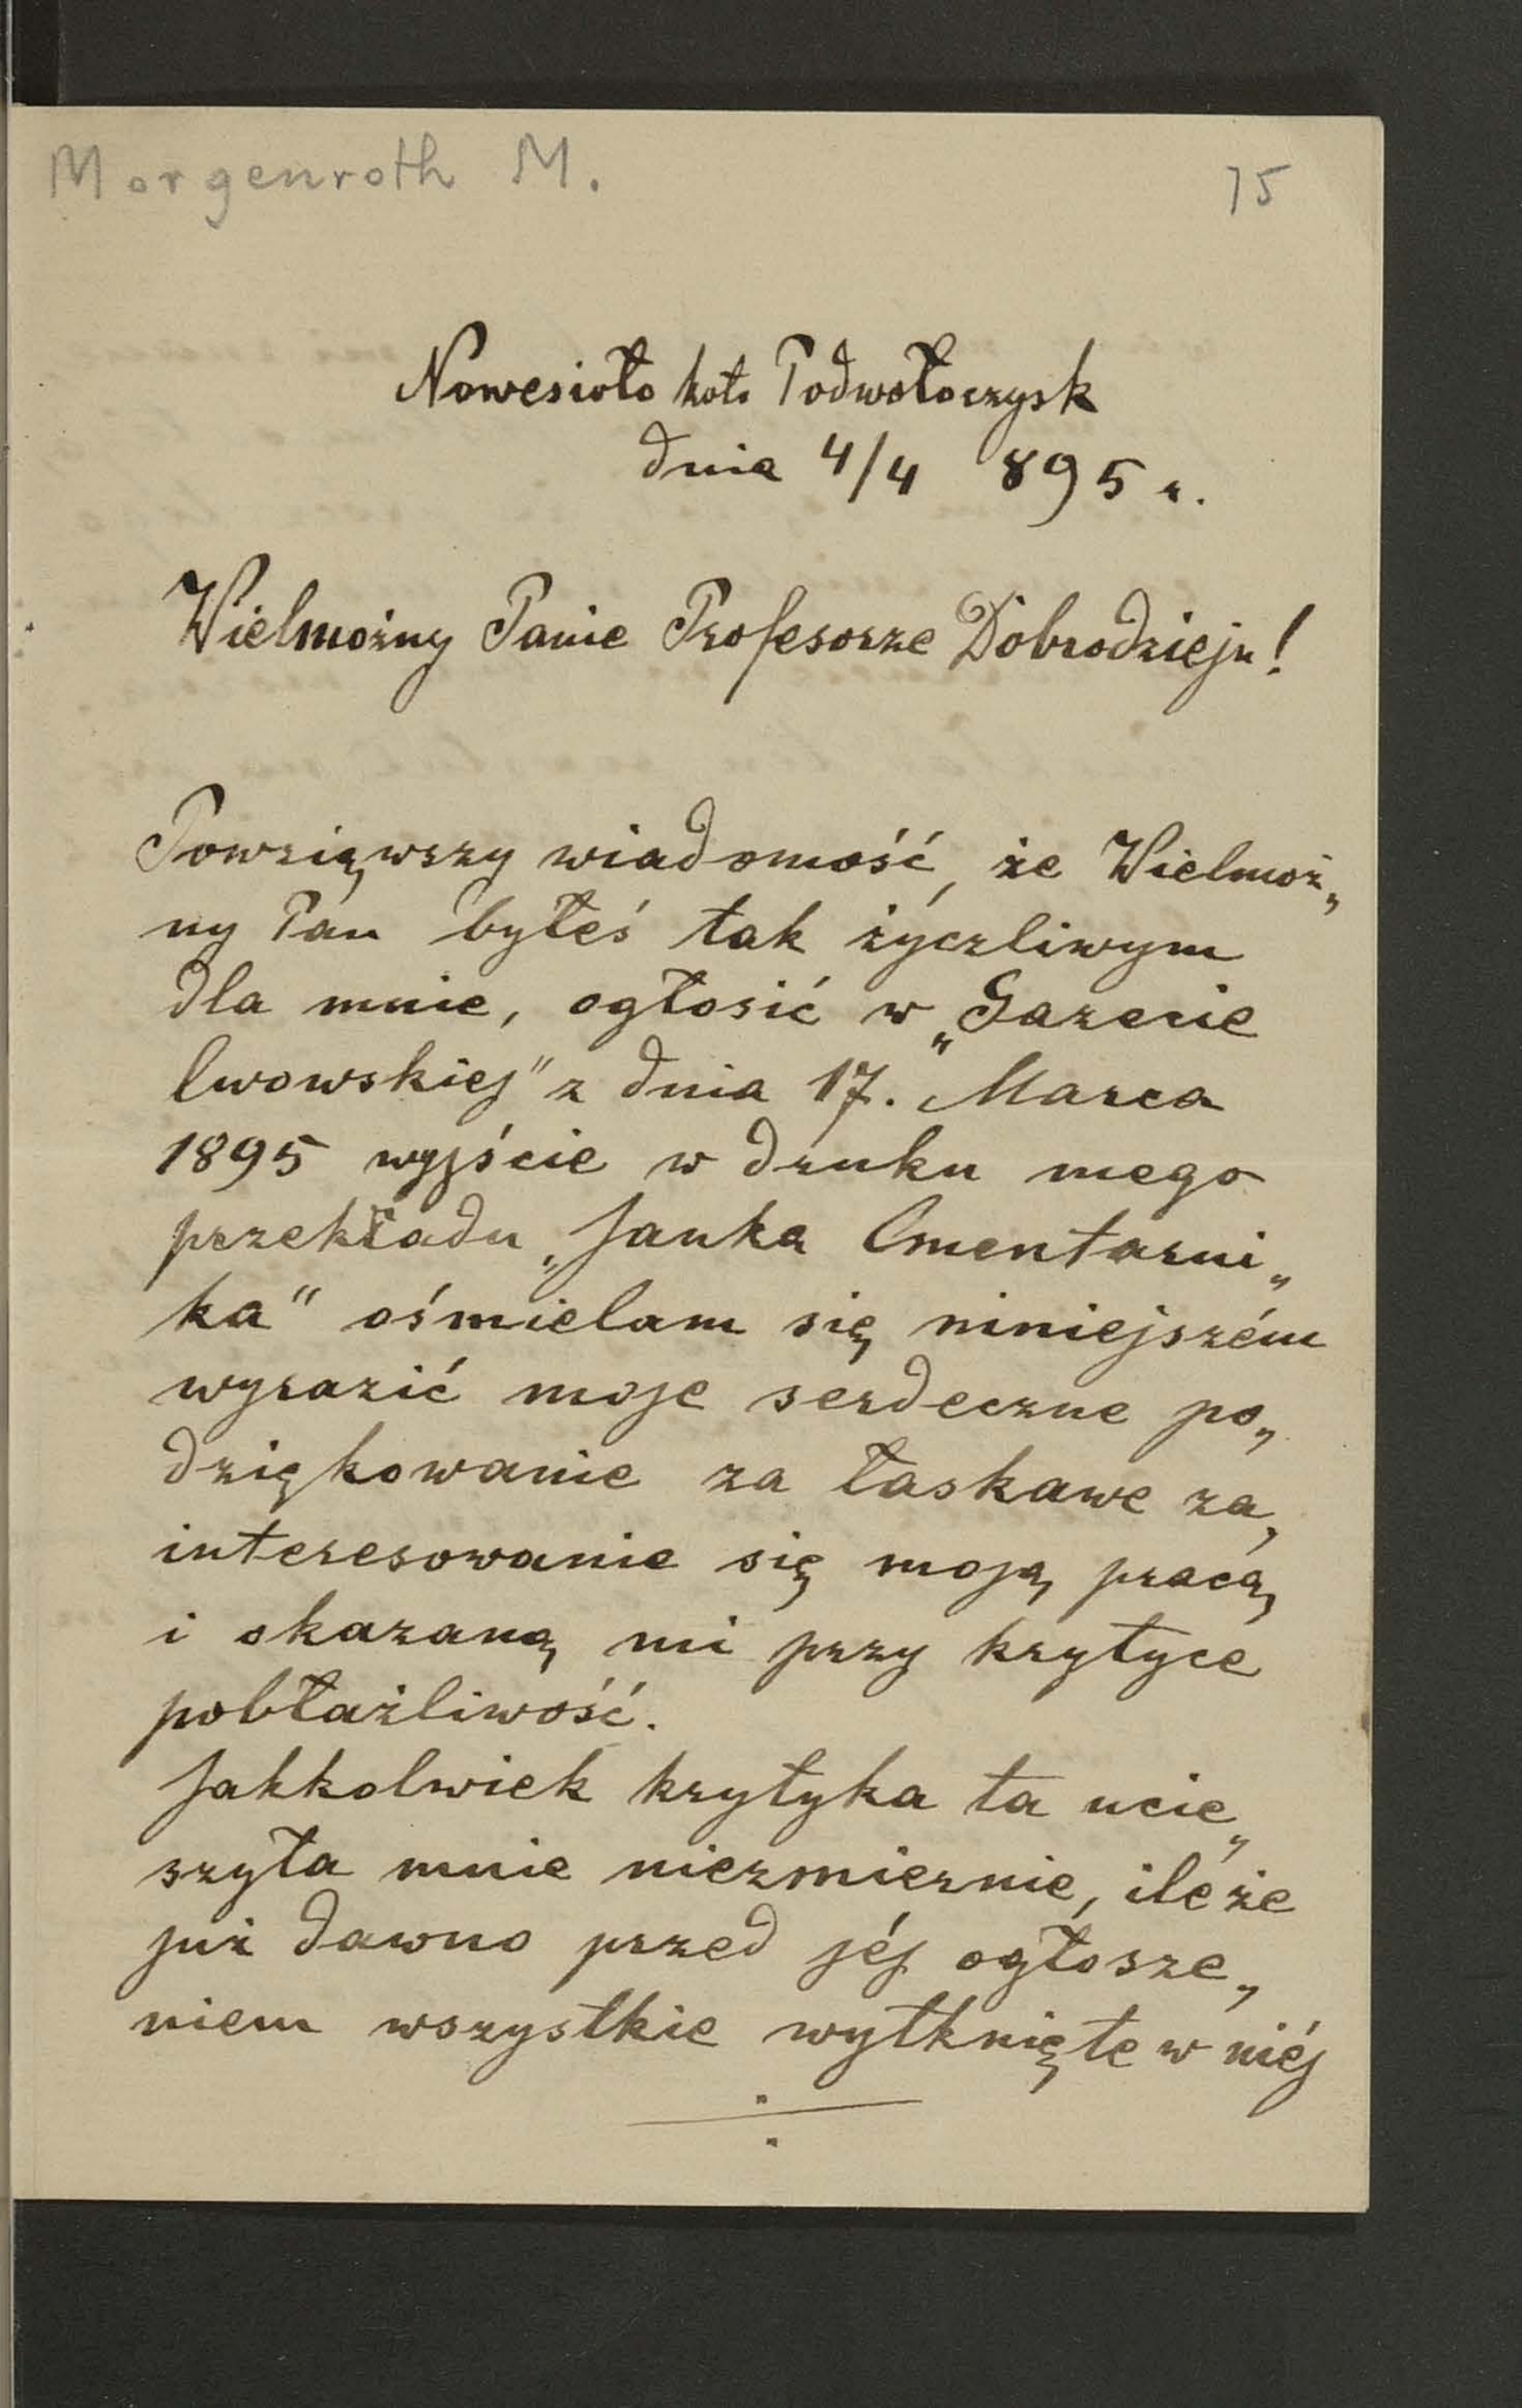 Morgenroth M.
75
Nowesioło koło Podwołoczysk
dnia 4/4 895 r.
Wielmożny Panie Profesorze Dobrodzieju!
Powziąwszy wiadomość, że Wielmoż„
ny Pan byłeś tak życzliwym
dla mnie, ogłosić w „Gazecie
lwowskiej" z dnia 17. Marca
1895 wyjście w druku mego
przekładu „Janka Cmentarni„
ka" ośmielam się niniejszém
wyrazić moje serdeczne po„
dziękowanie za łaskawe za„
interesowanie się moją pracą,
i okazaną mi przy krytyce
pobłażliwość.
Jakkolwiek krytyka ta ucie„
szyła mnie niezmiernie, ile że
już dawno przed jéj ogłosze„
niem wszystkie wytknięte w niéj